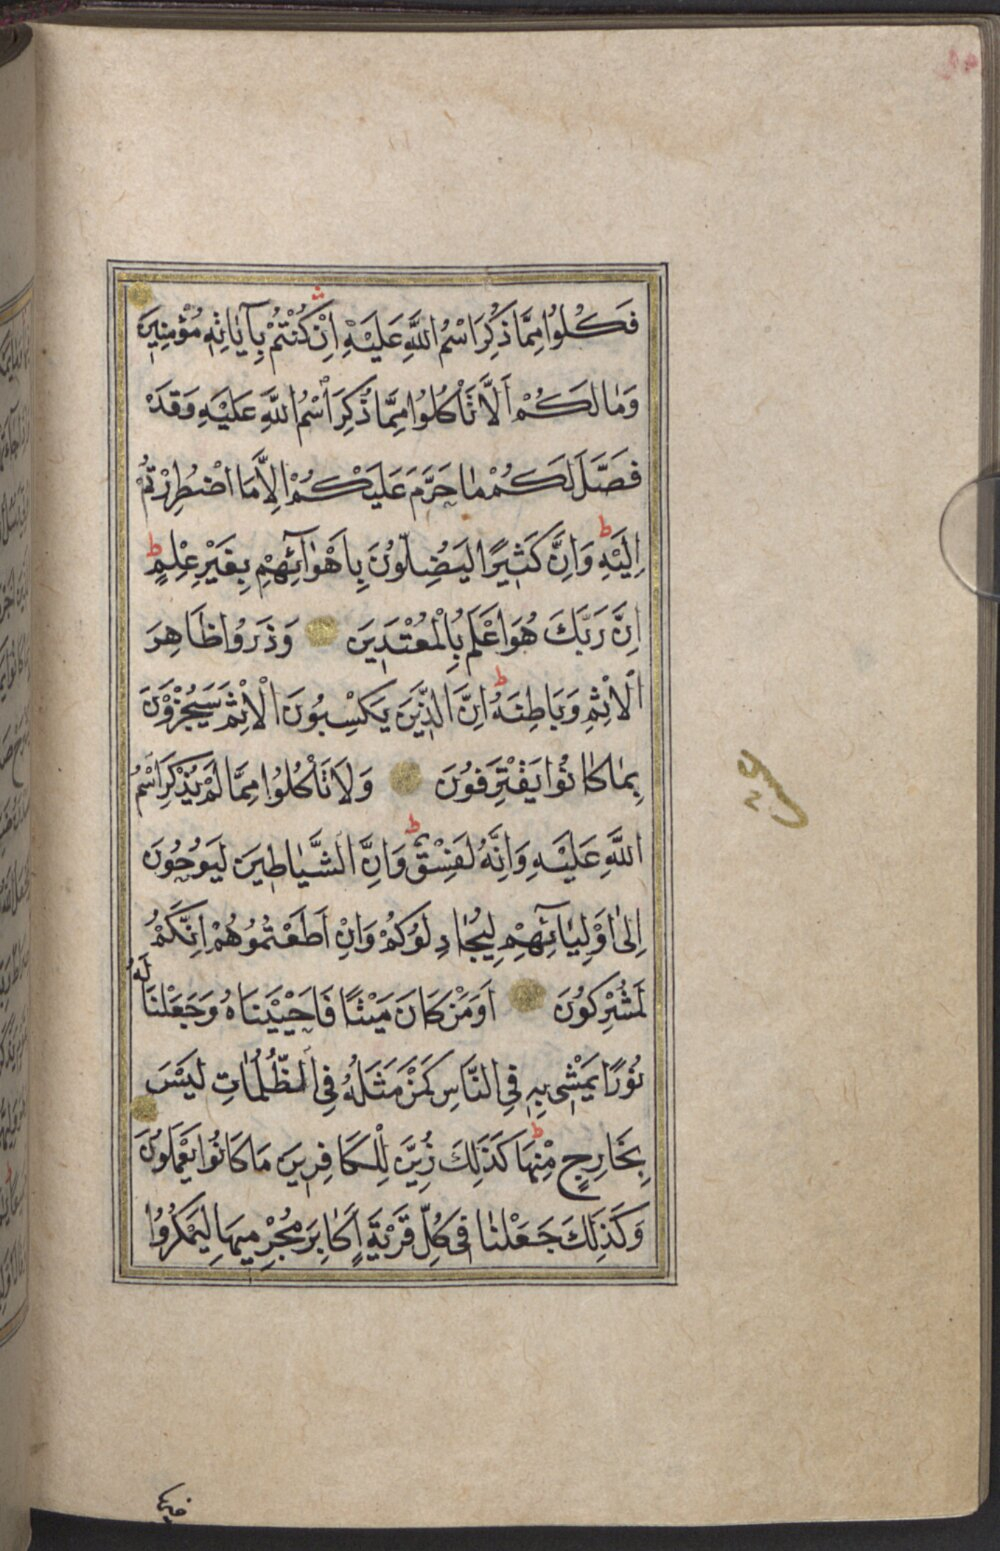 فَكُلُوا مِمَّا ذُكِرَ اسْمُ اللَّهِ عَلَيْهِ اِنْ كُنْتُمْ بِآيَاتِهِ مُؤْمِنِينَ
وَمَا لَكُمْ اَلَّا تَأْكُلُوا مِمَّا ذُكِرَ اسْمُ اللَّهِ عَلَيْهِ وَقَدْ
فَصَّلَ لَكُمْ مَا حَرَّمَ عَلَيْكُمْ اِلَّا مَا اضْطُرِرْتُمْ
اِلَيْهِ ط وَاِنَّ كَثِيرًا لَيُضِلُّونَ بِاَهْوَآئِهِمْ بِغَيْرِ عِلْمٍ ط
اِنَّ رَبَّكَ هُوَ اَعْلَمُ بِالْمُعْتَدِينَ وَذَرُوا ظَاهِرَ
الْاِثْمِ وَبَاطِنَهُ ط اِنَّ الَّذِينَ يَكْسِبُونَ الْاِثْمَ سَيُجْزَوْنَ
بِمَا كَانُوا يَقْتَرِفُونَ وَلَا تَأْكُلُوا مِمَّا لَمْ يُذْكَرِ اسْمُ
اللَّهِ عَلَيْهِ وَاِنَّهُ لَفِسْقٌ ط وَاِنَّ الشَّيَاطِينَ لَيُوحُونَ
اِلٰى اَوْلِيَآئِهِمْ لِيُجَادِلُوكُمْ وَاِنْ اَطَعْتُمُوهُمْ اِنَّكُمْ
لَمُشْرِكُونَ اَوَمَنْ كَانَ مَيْتًا فَاَحْيَيْنَاهُ وَجَعَلْنَا لَهُ
نُورًا يَمْشِي بِهِ فِي النَّاسِ كَمَنْ مَثَلُهُ فِي الظُّلُمَاتِ لَيْسَ
بِخَارِجٍ مِنْهَا ط كَذَلِكَ زُيِّنَ لِلْكَافِرِينَ مَا كَانُوا يَعْمَلُونَ
وَكَذَلِكَ جَعَلْنَا فِي كُلِّ قَرْيَةٍ اَكَابِرَ مُجْرِمِيهَا لِيَمْكُرُوا
فيها